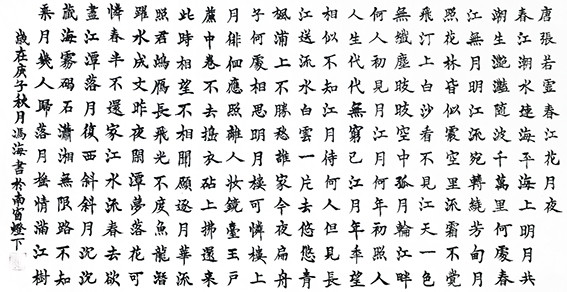 唐張若虛春江花月夜
春江潮水連海平海上明月共
潮生灩灩隨波千萬里何處春
江無月明江流宛轉繞芳甸月
照花林皆似霰空里流霜不覺
飛汀上白沙看不見江天一色
無纖塵皎皎空中孤月輪江畔
何人初見月江月何年初照人
人生代代無窮已江月年年望
相似不知江月待何人但見長
江送流水白雲一片去悠悠青
楓浦上不勝愁誰家今夜扁舟
子何處相思明月樓可憐樓上
月徘徊應照離人妝鏡臺玉戶
簾中卷不去搗衣砧上拂還來
此時相望不相聞願逐月華流
照君鴻雁長飛光不度魚龍潛
躍水成文昨夜閑潭夢落花可
憐春半不還家江水流春去欲
盡江潭落月復西斜斜月沉沉
藏海霧碣石瀟湘無限路不知
乘月幾人歸落月搖情滿江樹
歲在庚子秋月馮海書於南窗燈下